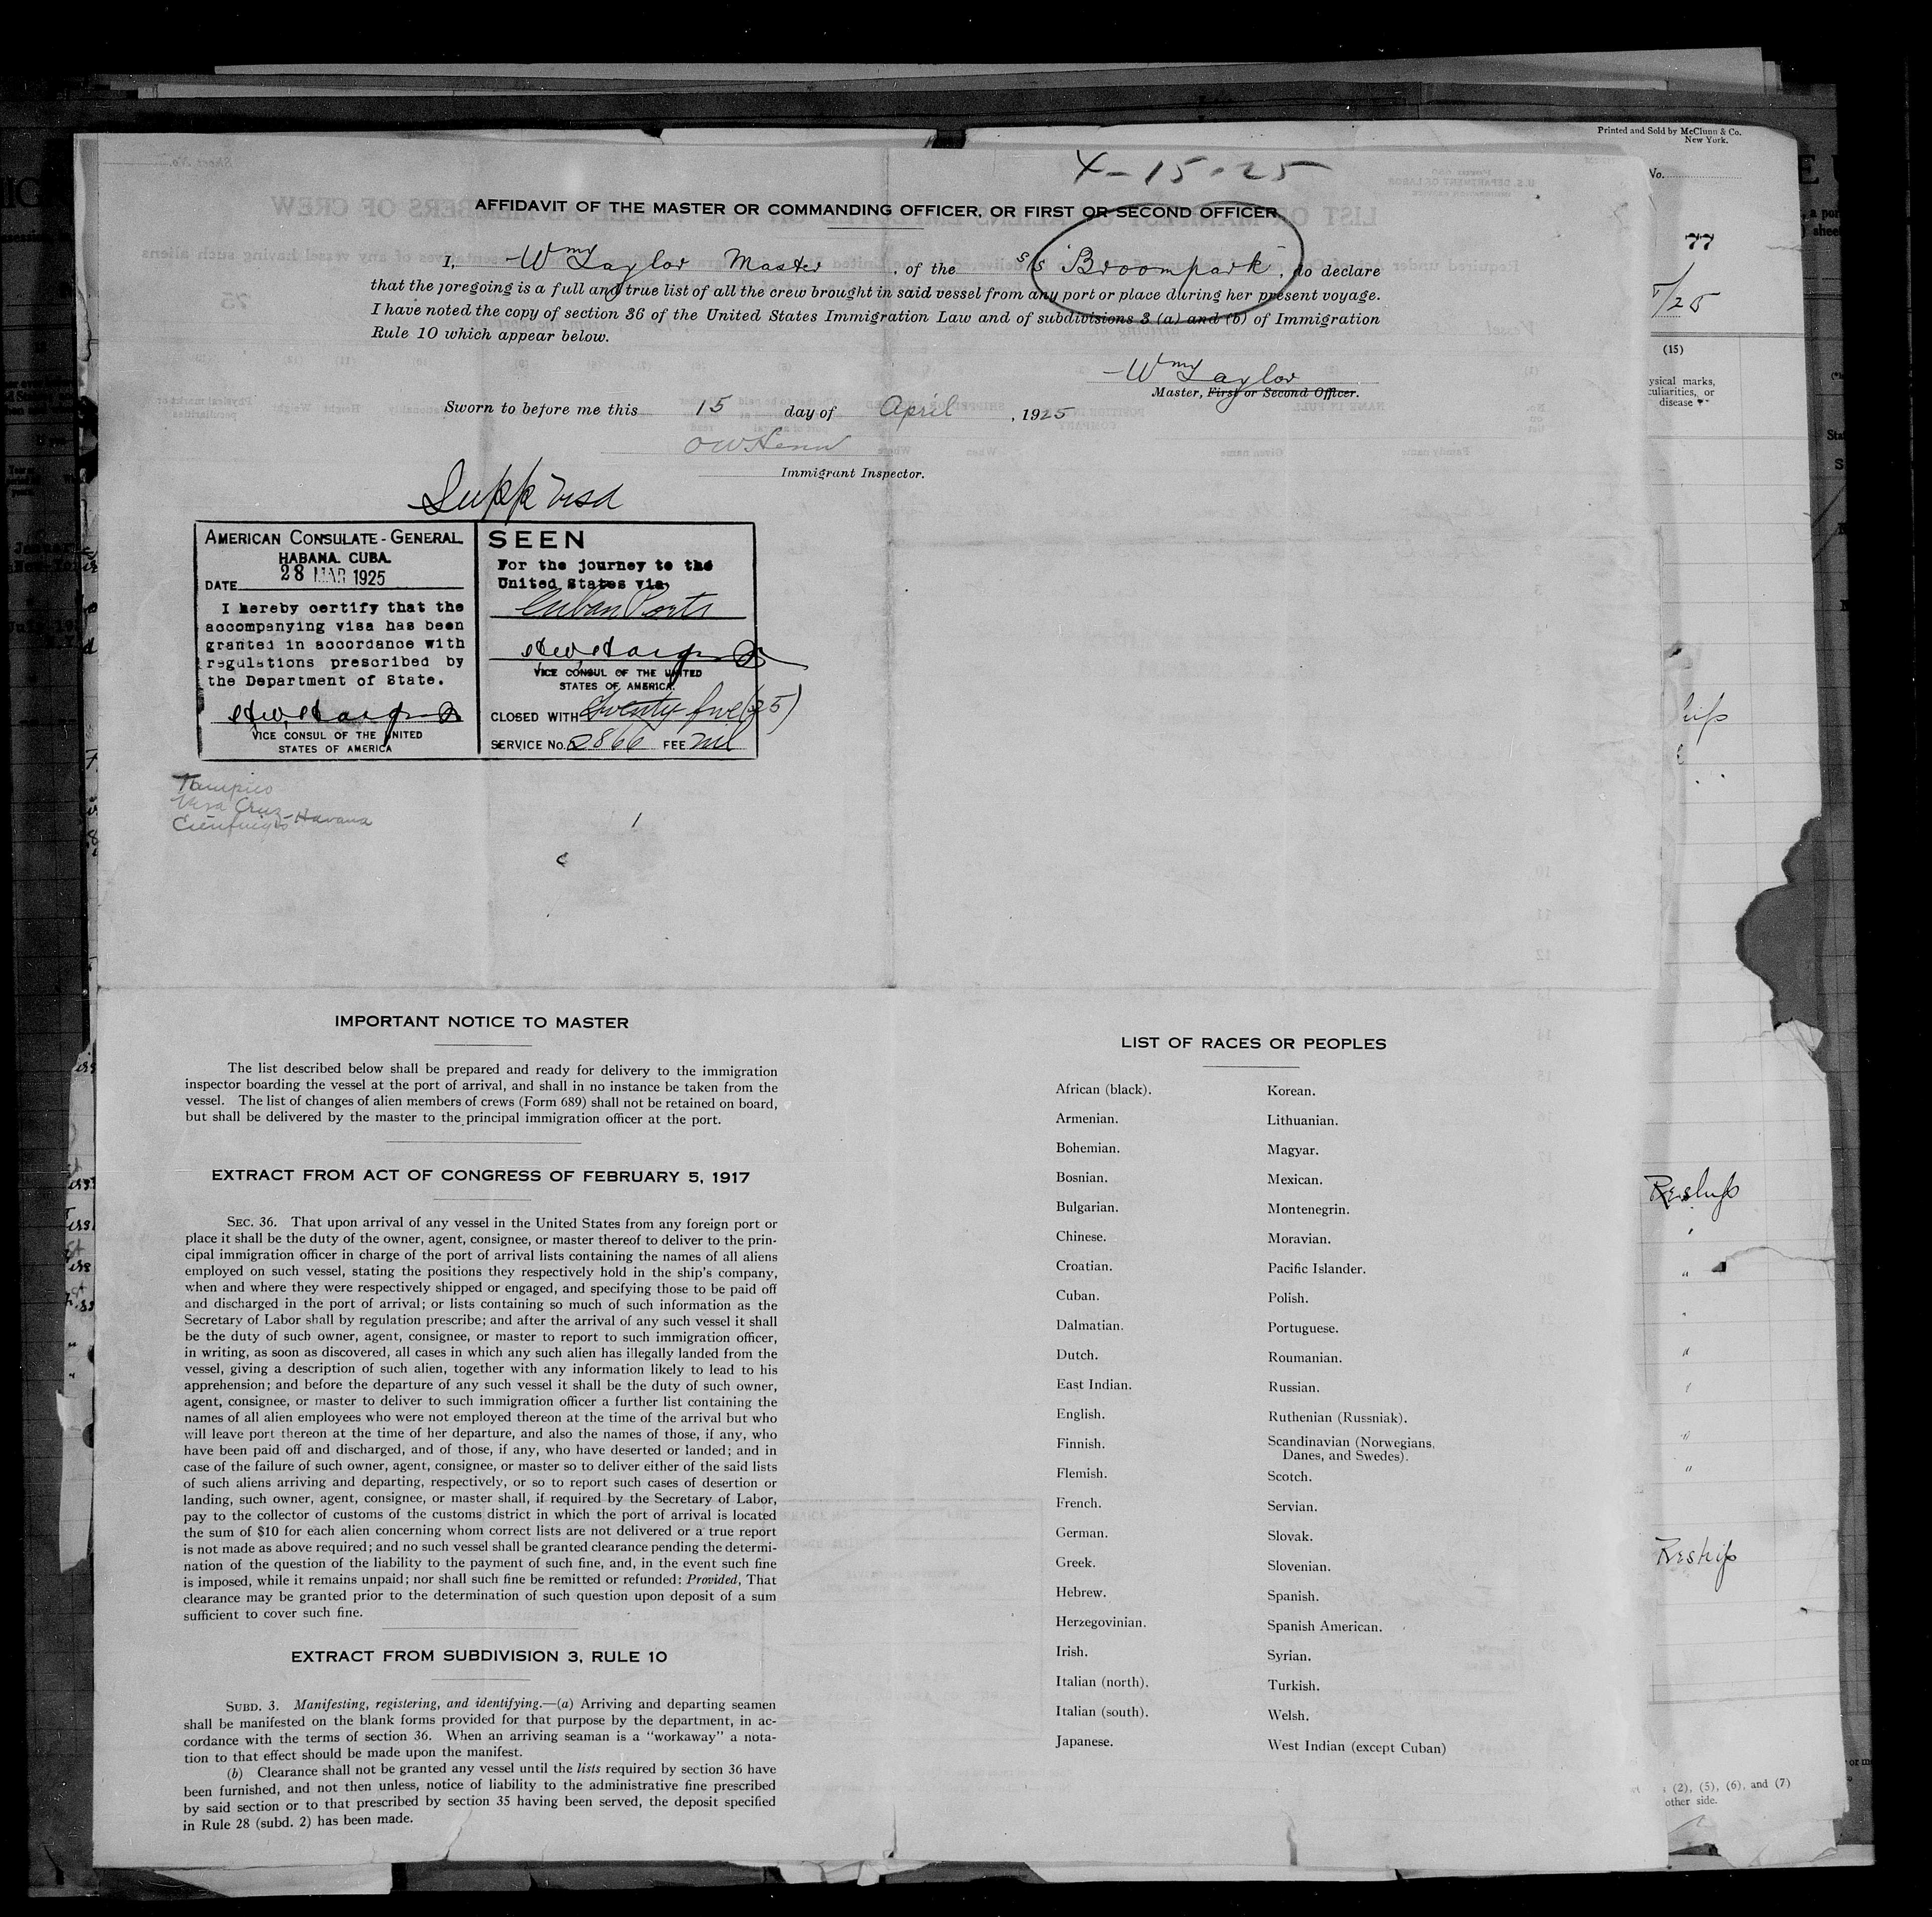 Printed and Sold by McClunn & Co.
New York.
4-15-25
AFFIDAVIT OF THE MASTER OR COMMANDING OFFICER, OR FIRST OR SECOND OFFICER
I, Wm Taylor Master, of the S/S Broompark, do declare
that the foregoing is a full and true list of all the crew brought in said vessel from any port or place during her present voyage.
I have noted the copy of section 36 of the United States Immigration Law and of subdivisions 3 (a) and (b) of Immigration
Rule 10 which appear below.
Wm Taylor
Master, First or Second Officer.
Sworn to before me this 15 day of April, 1925
Immigrant Inspector.
Supp Visa
AMERICAN CONSULATE-GENERAL
HABANA. CUBA.
DATE 28 MAR 1925
I hereby certify that the
accompanying visa has been
granted in accordance with
regulations prescribed by
the Department of State.
VICE CONSUL OF THE UNITED
STATES OF AMERICA
SEEN
For the journey to the
United States via
Cuban Ports
VICE CONSUL OF THE UNITED
STATES OF AMERICA.
CLOSED WITH Twenty five (25)
SERVICE No. 2866 FEE nil
Tampico
Vera Cruz
Cienfuegos-Havana
IMPORTANT NOTICE TO MASTER
The list described below shall be prepared and ready for delivery to the immigration
inspector boarding the vessel at the port of arrival, and shall in no instance be taken from the
vessel. The list of changes of alien members of crews (Form 689) shall not be retained on board,
but shall be delivered by the master to the principal immigration officer at the port.
EXTRACT FROM ACT OF CONGRESS OF FEBRUARY 5, 1917
SEC. 36. That upon arrival of any vessel in the United States from any foreign port or
place it shall be the duty of the owner, agent, consignee, or master thereof to deliver to the prin-
cipal immigration officer in charge of the port of arrival lists containing the names of all aliens
employed on such vessel, stating the positions they respectively hold in the ship's company,
when and where they were respectively shipped or engaged, and specifying those to be paid off
and discharged in the port of arrival; or lists containing so much of such information as the
Secretary of Labor shall by regulation prescribe; and after the arrival of any such vessel it shall
be the duty of such owner, agent, consignee, or master to report to such immigration officer,
in writing, as soon as discovered, all cases in which any such alien has illegally landed from the
vessel, giving a description of such alien, together with any information likely to lead to his
apprehension; and before the departure of any such vessel it shall be the duty of such owner,
agent, consignee, or master to deliver to such immigration officer a further list containing the
names of all alien employees who were not employed thereon at the time of the arrival but who
will leave port thereon at the time of her departure, and also the names of those, if any, who
have been paid off and discharged, and of those, if any, who have deserted or landed; and in
case of the failure of such owner, agent, consignee, or master so to deliver either of the said lists
of such aliens arriving and departing, respectively, or so to report such cases of desertion or
landing, such owner, agent, consignee, or master shall, if required by the Secretary of Labor,
pay to the collector of customs of the customs district in which the port of arrival is located
the sum of $10 for each alien concerning whom correct lists are not delivered or a true report
is not made as above required; and no such vessel shall be granted clearance pending the determi-
nation of the question of the liability to the payment of such fine, and, in the event such fine
is imposed, while it remains unpaid; nor shall such fine be remitted or refunded: Provided, That
clearance may be granted prior to the determination of such question upon deposit of a sum
sufficient to cover such fine.
EXTRACT FROM SUBDIVISION 3, RULE 10
SUBD. 3. Manifesting, registering, and identifying.—(a) Arriving and departing seamen
shall be manifested on the blank forms provided for that purpose by the department, in ac-
cordance with the terms of section 36. When an arriving seaman is a "workaway" a nota-
tion to that effect should be made upon the manifest.
(b) Clearance shall not be granted any vessel until the lists required by section 36 have
been furnished, and not then unless, notice of liability to the administrative fine prescribed
by said section or to that prescribed by section 35 having been served, the deposit specified
in Rule 28 (subd. 2) has been made.
LIST OF RACES OR PEOPLES
African (black).
Armenian.
Bohemian.
Bosnian.
Bulgarian.
Chinese.
Croatian.
Cuban.
Dalmatian.
Dutch.
East Indian.
English.
Finnish.
Flemish.
French.
German.
Greek.
Hebrew.
Herzegovinian.
Irish.
Italian (north).
Italian (south).
Japanese.
Korean.
Lithuanian.
Magyar.
Mexican.
Montenegrin.
Moravian.
Pacific Islander.
Polish.
Portuguese.
Roumanian.
Russian.
Ruthenian (Russniak).
Scandinavian (Norwegians,
Danes, and Swedes).
Scotch.
Servian.
Slovak.
Slovenian.
Spanish.
Spanish American.
Syrian.
Turkish.
Welsh.
West Indian (except Cuban)
No.
77
(15)
ysical marks,
culiarities, or
disease
Reship
Reship
(2), (5), (6), and (7)
other side.